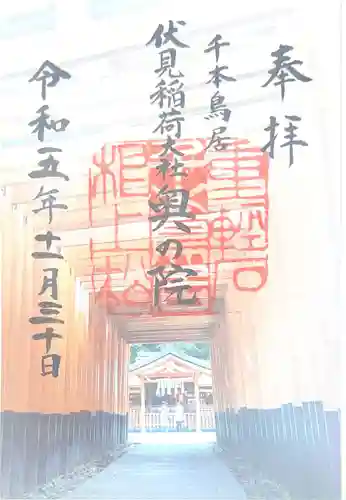 奉拝
千本鳥居
伏見稲荷大社奥の院
令和五年十一月三十日